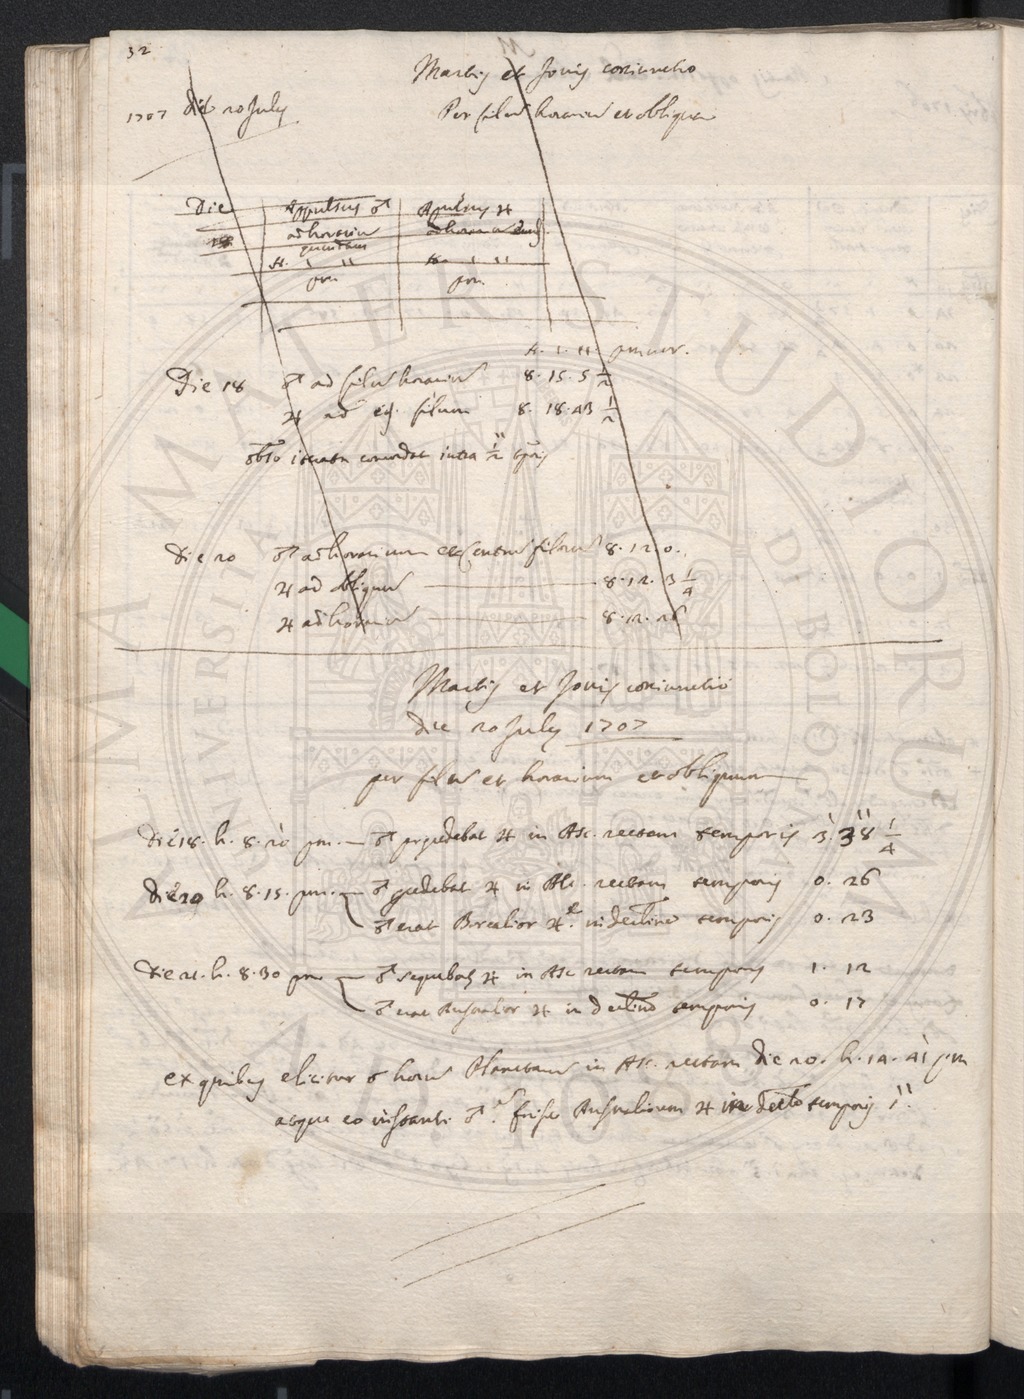 32
Martis et Jovis coniunctio
1707 die 20 July
Per filum horarium et obliquum
Die Appulsus ♂ Appulsus ♃
18 ad horarium ad horarium
H. ' '' H. ' ''
pm. pm.
H. ' ''
Die 18 ♂ ad filum horarium 8. 15. 5 1/2
♃ ad eundem filum 8. 18. 43 1/2
concordat intra 1/2''
die 20 ♂ ad horarium et filum 8. 12. 0.
♃ ad obliquum 8. 12. 3 1/4
♃ ad horarium 8. 12. 26
Martis et Jovis coniunctio
die 20 July 1707
per filum et horarium et obliquum
Die 18. h. 8. 20' pm. — ♂ precedebat ♃ in Asc. rectam temporis 3'. 38'' 1/4
Die 20 h. 8. 15. pm. — ♂ precedebat ♃ in Asc. rectam temporis 0. 26
♂ erat Borealior ♃ in declinatione temporis 0. 23
Die 21. h. 8. 30 pm — ♂ sequebatur ♃ in Asc rectam temporis 1. 12
♂ erat Australior ♃ in declinatione temporis 0. 17
ex quibus elicitur ☌ horum Planetarum in Asc. rectam die 20. h. 14. 41' pm
atque eo instanti ♂ fuisse Australiorem ♃ in declinatione temporis 1''.
ALMA MATER STUDIORUM
UNIVERSITÀ DI BOLOGNA